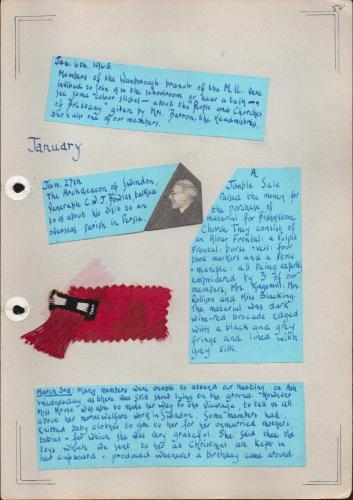 58
Jan. 6th. 1968.
Members of the Wanborough branch of the M.U. were
invited to join us in the schoolroom to hear a talk - &
see some colour slides - about the People and Churches
of Brittany" given by Mrs. Barron, the Headmistress,
who is also one of our members.
January
Jan. 27th
The Archdeacon of Swindon,
Venerable C.W.J. Bowles talked
to us about his visit to an
overseas parish in Persia.
A
Jumble Sale
raised the money for
the purchase of
material for Bishopstone
Church. They consist of
an Altar Frontal: a Pulpit
Frontal: burse: veil: four
book markers and a stole
- maniple: all being expertly
embroidered by 3 of our
members, Mrs. Knapp, Mrs.
and Miss
The material was dark
wine-red brocade edged
with a black and grey
fringe and lined with
grey silk.
March 3rd: Many members were unable to attend our meeting on Ash
Wednesday as there was still snow lying on the ground. However
Miss was able to make her way to the Vicarage, to tell us all
about her moral welfare work in Swindon. Some members had
knitted baby clothes to give to her for her unmarried mothers
babies - for which she was very grateful. She said that the
toys which we sent to her at Christmas are kept in
her cupboard & produced whenever a birthday came around.